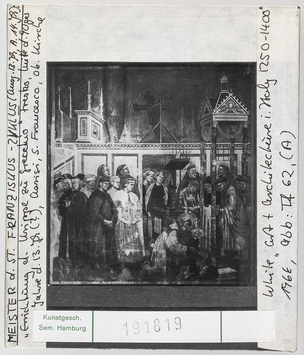 MEISTER d. ST. FRANZISKUS-ZYKLUS (Aug. 12.79, A. 14. Jh.)
"Errichtung der Krippe zu Greccio", Fresko, Mitte d. 90er
Jahre d. 13. Jh. (?), Assisi, S. Francesco, Ob. Kirche
White, "Art + Architecture i. Italy 1250-1400"
1966, Abb: Tf 62 (A)
Kunstgesch.
Sem. Hamburg
191819